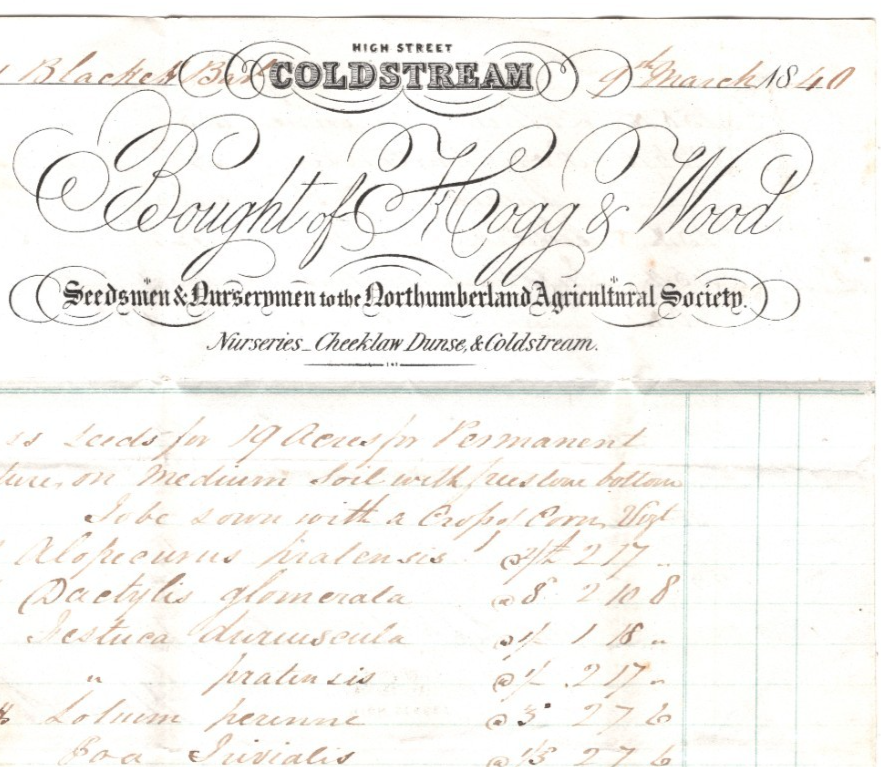 HIGH STREET
Blackett Bart COLDSTREAM 9th March 1840
Bought of Hogg & Wood
Seedsmen & Nurserymen to the Northumberland Agricultural Society.
Nurseries_Cheeklaw Dunse, & Coldstream.
ss Seeds for 19 Acres for Permanent
ture, on Medium Soil with freestone bottom
To be sown with a Crop of Corn, Vizt
Alopecurus pratensis 2 17 "
Dactylis glomerata @ 8 2 10 8
Festuca duriuscula @ 1/ 1 18 "
" pratensis @ 1/ 2 17 "
Lolium perenne @ 3 2 7 6
Poa Trivialis @ 1/3 2 7 6